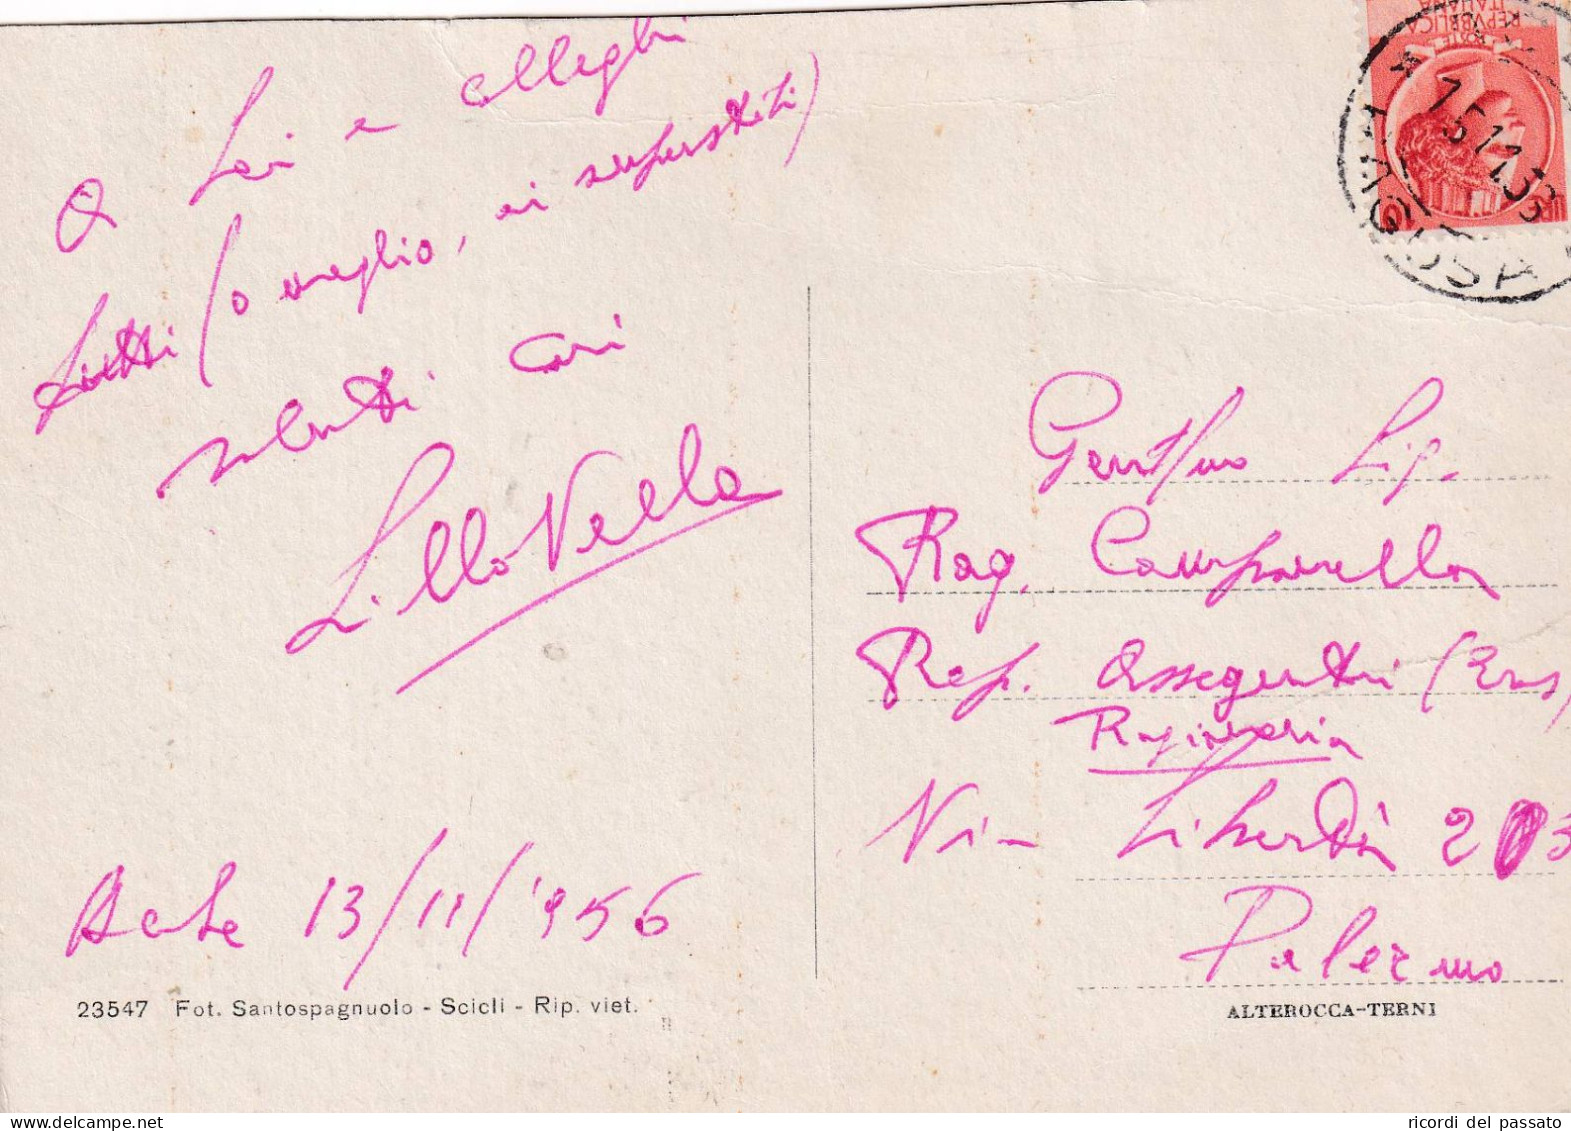 A Lei e colleghi
tutti (o meglio, ai superstiti)
saluti cari
Lillo Vella
13/11/1956
23547 Fot. Santospagnuolo - Scicli - Rip. viet.
REPVBBLICA
ITALIANA
POSTE
RAGUSA
Gentilmo Sig.
Rag. Campanella
Rep. Assegnati (Eras)
Ragioneria
Via Libertà 203
Palermo
ALTEROCCA-TERNI
ricordi del passato